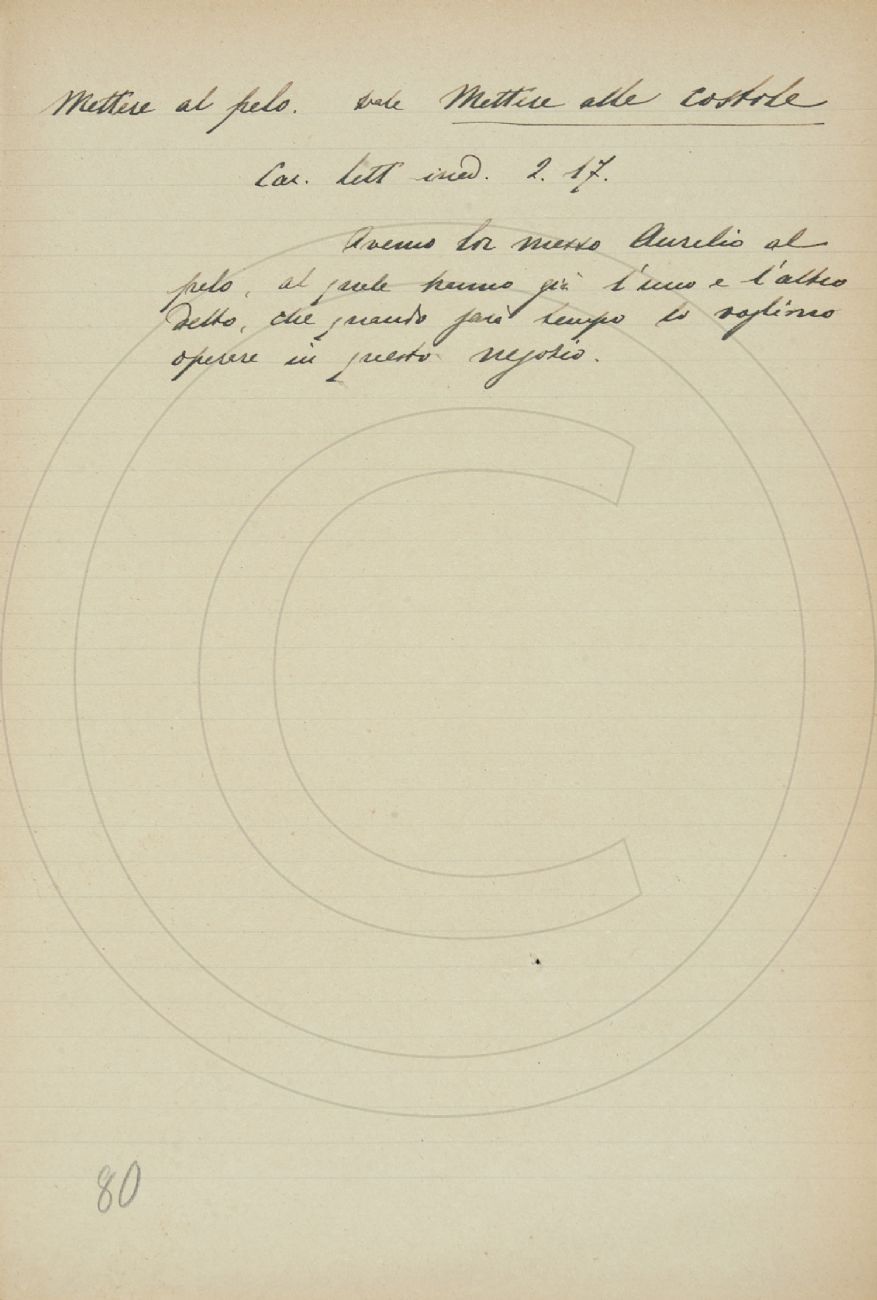 Mettere al pelo. Vale Mettere alle costole
Car. Lett ined. 2. 17.
Avemo lor messo Aurelio al
pelo, al quale hanno già l'uno e l'altro
detto, che quando sarà tempo lo vogliono
operare in questo negozio.
80